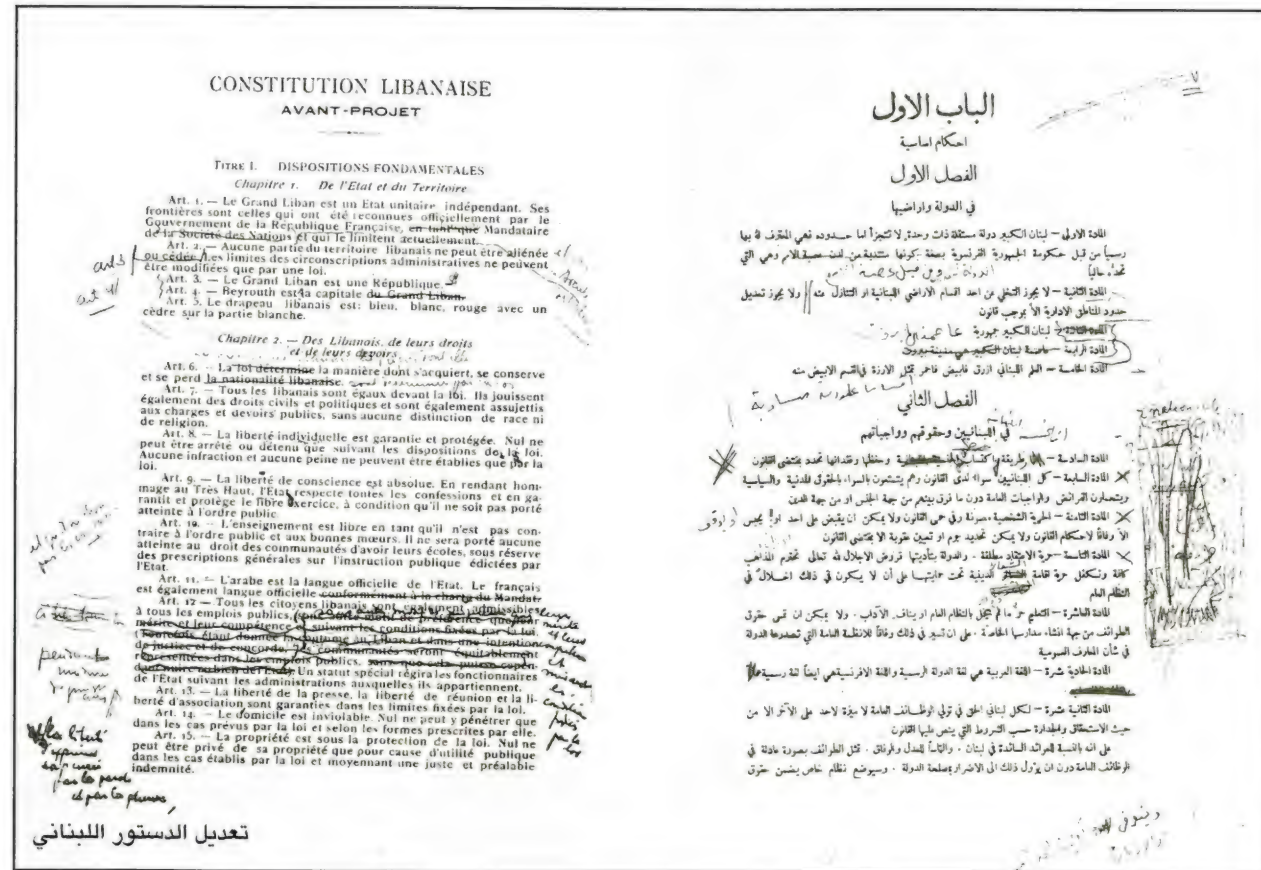 CONSTITUTION LIBANAISE
AVANT-PROJET
TITRE I. DISPOSITIONS FONDAMENTALES
Chapitre 1. De l'Etat et du Territoire
Art. 1. — Le Grand Liban est un Etat unitaire indépendant. Ses
frontières sont celles qui ont été reconnues officiellement par le
Gouvernement de la République Française, en tant que Mandataire
de la Société des Nations et qui le limitent actuellement.
Art. 2. — Aucune partie du territoire libanais ne peut être aliénée
ou cédée. Les limites des circonscriptions administratives ne peuvent
être modifiées que par une loi.
art 3
Art. 3. — Le Grand Liban est une République.
art 4
Art. 4. — Beyrouth est la capitale du Grand Liban.
Art. 5. Le drapeau libanais est: bleu, blanc, rouge avec un
cèdre sur la partie blanche.
Chapitre 2. — Des Libanais, de leurs droits
et de leurs devoirs
Art. 6. — La loi détermine la manière dont s'acquiert, se conserve
et se perd la nationalité libanaise.
Art. 7. — Tous les libanais sont égaux devant la loi. Ils jouissent
également des droits civils et politiques et sont également assujettis
aux charges et devoirs publics, sans aucune distinction de race ni
de religion.
Art. 8. — La liberté individuelle est garantie et protégée. Nul ne
peut être arrêté ou détenu que suivant les dispositions de la loi.
Aucune infraction et aucune peine ne peuvent être établies que par la
loi.
Art. 9. — La liberté de conscience est absolue. En rendant hom-
mage au Très Haut, l'Etat respecte toutes les confessions et en ga-
rantit et protège le libre exercice, à condition qu'il ne soit pas porté
atteinte à l'ordre public
Art. 10. — L'enseignement est libre en tant qu'il n'est pas con-
traire à l'ordre public et aux bonnes mœurs. Il ne sera porté aucune
atteinte au droit des communautés d'avoir leurs écoles, sous réserve
des prescriptions générales sur l'instruction publique édictées par
l'Etat.
Art. 11. — L'arabe est la langue officielle de l'Etat. Le français
est également langue officielle conformément à la charte du Mandat.
Art. 12 — Tous les citoyens libanais sont également admissibles
à tous les emplois publics, sans autre motif de préférence que leur
mérite et leur compétence et suivant les conditions fixées par la loi.
Toutefois, étant donnée la coutume au Liban et dans une intention
de justice et de concorde, les communautés seront équitablement
représentées dans les emplois publics, sans que cela puisse cepen-
dant nuire au bien de l'Etat. Un statut spécial régira les fonctionnaires
de l'Etat suivant les administrations auxquelles ils appartiennent.
Art. 13. — La liberté de la presse, la liberté de réunion et la li-
berté d'association sont garanties dans les limites fixées par la loi.
Art. 14. — Le domicile est inviolable. Nul ne peut y pénétrer que
dans les cas prévus par la loi et selon les formes prescrites par elle.
Art. 15. — La propriété est sous la protection de la loi. Nul ne
peut être privé de sa propriété que pour cause d'utilité publique
dans les cas établis par la loi et moyennant une juste et préalable
indemnité.
تعديل الدستور اللبناني
الباب الاول
احكام اساسية
الفصل الاول
في الدولة واراضيها
المادة الاولى – لبنان الكبير دولة مستقلة ذات وحدة لا تتجزأ اما حدوده فهي المعترف له بها
رسمياً من قبل حكومة الجمهورية الفرنسوية بصفة كونها منتدبة من لدن عصبة الامم وهي التي
تحده حالياً
المادة الثانية – لا يجوز التخلي عن احد اقسام الاراضي اللبنانية او التنازل عنه ولا يجوز تعديل
حدود المناطق الادارية الا بموجب قانون
المادة الثالثة – لبنان الكبير جمهورية
المادة الرابعة – عاصمة لبنان الكبير هي مدينة بيروت
المادة الخامسة – العلم اللبناني ازرق فابيض فاحمر تمثل الارزة في القسم الابيض منه
الفصل الثاني
في اللبنانيين وحقوقهم وواجباتهم
المادة السادسة – طريقة اكتساب وحفظها وفقدانها تحدد بمقتضى القانون
المادة السابعة – كل اللبنانيين سواء لدى القانون وهم يتمتعون بالسواء بالحقوق المدنية والسياسية
ويتحملون الفرائض والواجبات العامة دون ما فرق بينهم من جهة الجنس او من جهة الدين
المادة الثامنة – الحرية الشخصية مصونة وفي حمى القانون ولا يمكن ان يقبض على احد او يحبس
الا وفاقاً لاحكام القانون ولا يمكن تحديد جرم او تعيين عقوبة الا بمقتضى القانون
المادة التاسعة – حرية الاعتقاد مطلقة . والدولة بتأديتها فروض الاجلال لله تعالى تحترم المذاهب
كافة وتكفل حرية اقامة الدينية تحت حمايتها على أن لا يكون في ذلك اخلال في
النظام العام
المادة العاشرة – التعليم حر ما لم يخل بالنظام العام او ينافِ الآداب . ولا يمكن ان تمس حقوق
الطوائف من جهة انشاء مدارسها الخاصة . على ان تسير في ذلك وفاقاً للانظمة العامة التي تصدرها الدولة
في شأن المعارف العمومية
المادة الحادية عشرة – اللغة العربية هي لغة الدولة الرسمية واللغة الافرنسية هي ايضاً لغة رسمية
المادة الثانية عشرة – لكل لبناني الحق في تولي الوظائف العامة لا ميزة لاحد على الآخر الا من
حيث الاستحقاق والجدارة حسب الشروط التي ينص عليها القانون
على انه بالنسبة للعوائد السائدة في لبنان . والتماساً للعدل والوفاق . تمثل الطوائف بصورة عادلة في
الوظائف العامة دون ان يؤول ذلك الى الاضرار بمصلحة الدولة . وسيوضع نظام خاص يضمن حقوق